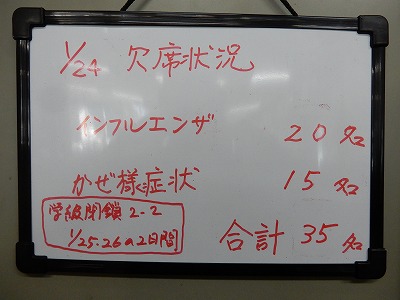 1/24 欠席状況
インフルエンザ 20名
かぜ様症状 15名
学級閉鎖 2-2
1/25.26の2日間
合計 35名